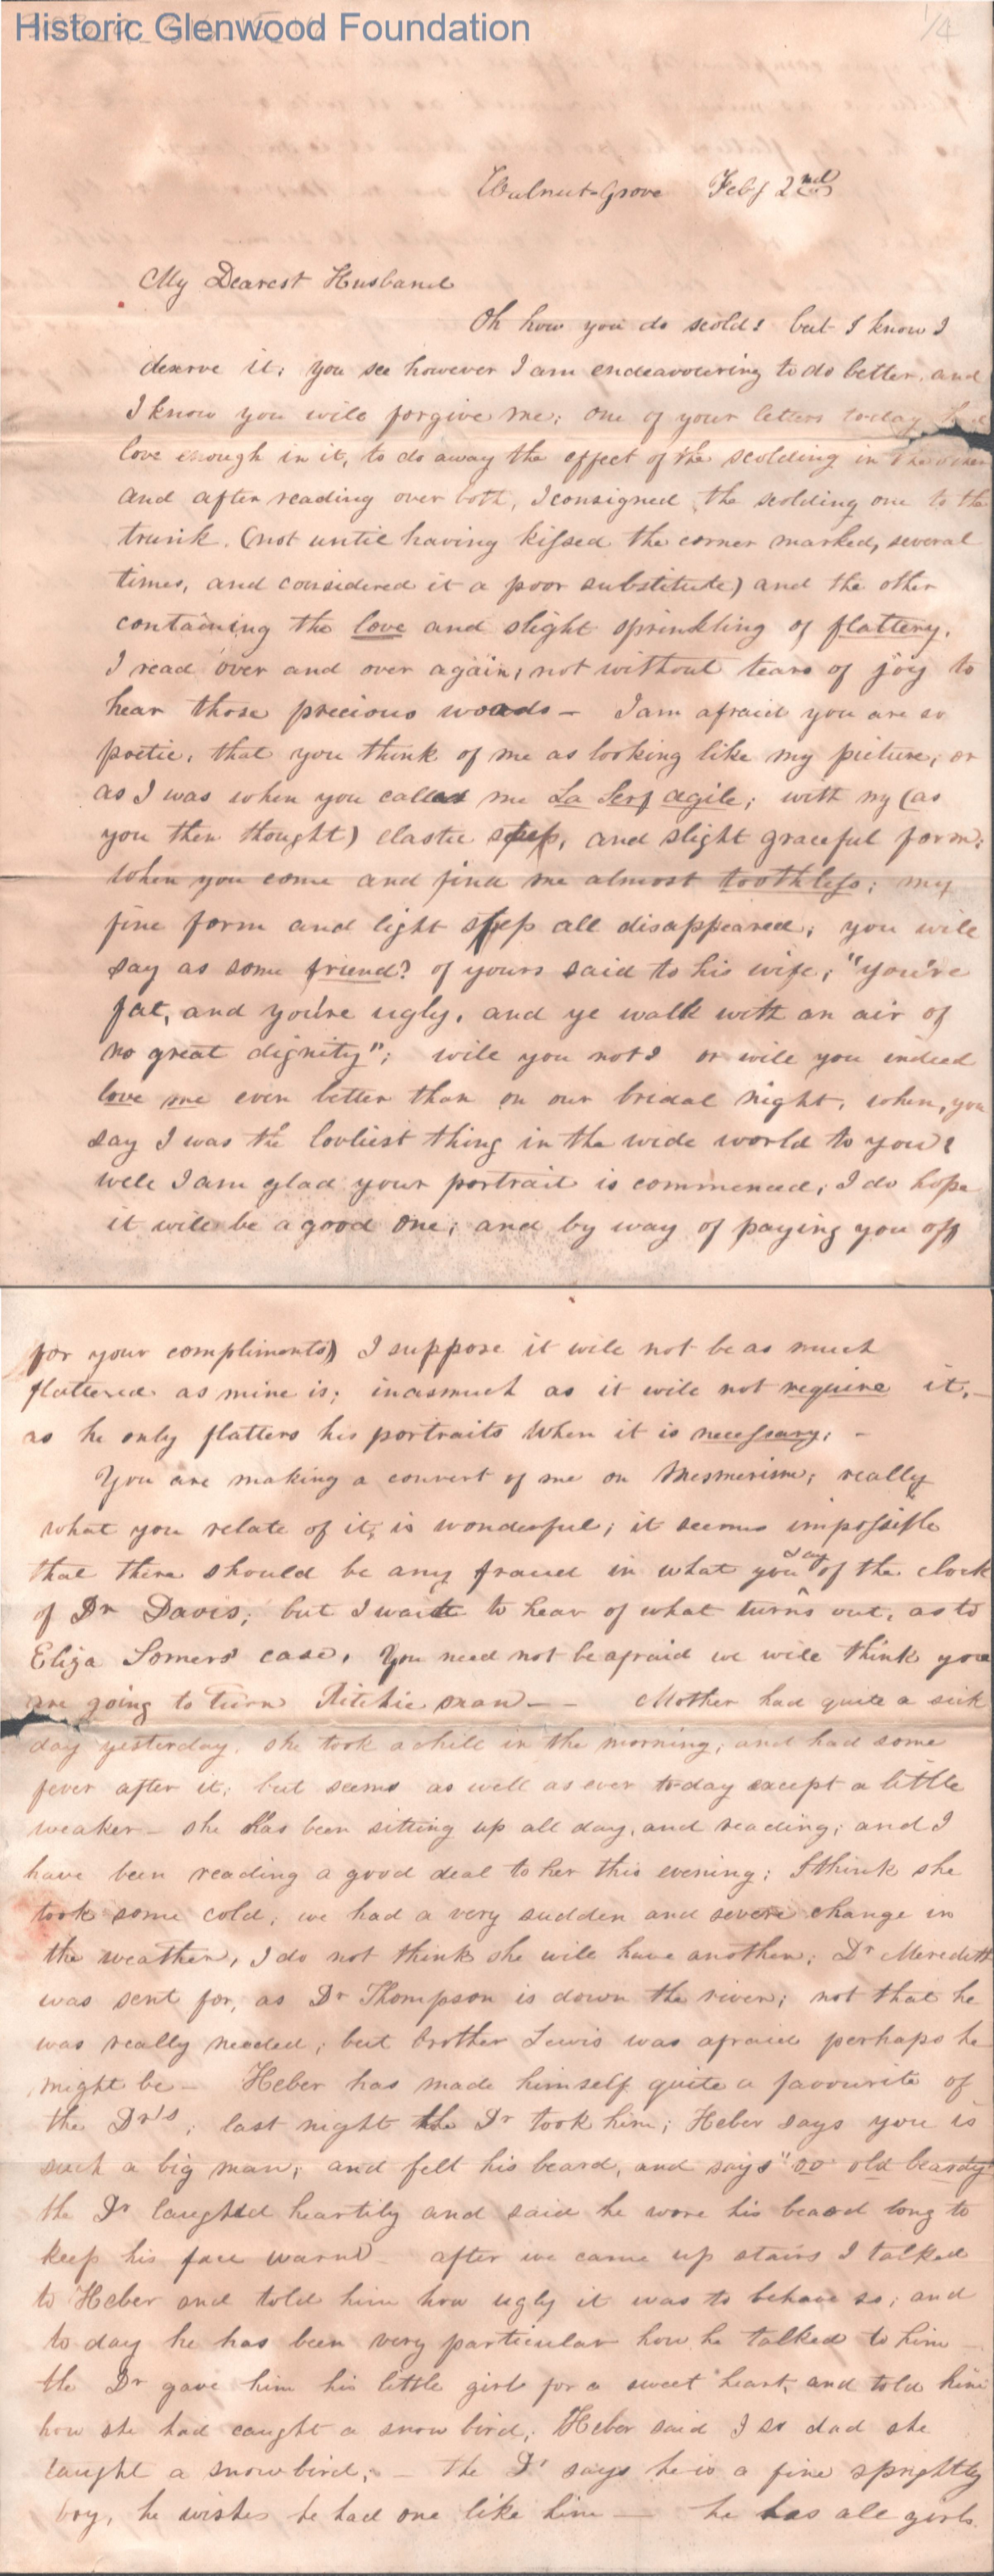 Historic Glenwood Foundation
1/4
Walnut-Grove Feby 2nd
My Dearest Husband
Oh how you do scold! but I know I
deserve it; you see however I am endeavouring to do better, and
I know you will forgive me; one of your letters today had
love enough in it, to do away the effect of the scolding in the other
and after reading over both, I consigned the scolding one to the
trunk. (not until having kissed the corner marked, several
times, and considered it a poor substitute) and the other
containing the love and slight sprinkling of flattery.
I read over and over again, not without tears of joy to
hear those precious words — I am afraid you are so
poetic, that you think of me as looking like my picture; or
as I was when you called me La Serf agile; with my (as
you then thought) elastic step, and slight graceful form;
when you come and find me almost toothless; my
fine form and light step all disappeared; you will
say as some friend? of yours said to his wife; "you're
fat, and you're ugly, and ye walk with an air of
no great dignity"; will you not? or will you indeed
love me even better than on our bridal night, when, you
say I was the lovliest thing in the wide world to you?
well I am glad your portrait is commenced; I do hope
it will be a good one; and by way of paying you off
for your compliments) I suppose it will not be as much
flattered as mine is; inasmuch as it will not require it. —
as he only flatters his portraits when it is necessary. —
You are making a convert of me on Mesmerism; really
what you relate of it, is wonderful; it seems impossible
that there should be any fraud in what you say of the clock
of Dr Davis; but I wait to hear of what turns out, as to
Eliza Somers' case. You need not be afraid we will think you
are going to turn Ritchie man — — Mother had quite a sick
day yesterday, she took a chill in the morning, and had some
fever after it; but seems as well as ever to-day except a little
weaker — she has been sitting up all day, and reading; and I
have been reading a good deal to her this evening; I think she
took some cold; we had a very sudden and severe change in
the weather, I do not think she will have another; Dr Meredith
was sent for, as Dr Thompson is down the river; not that he
was really needed; but brother Lewis was afraid perhaps he
might be — Heber has made himself quite a favourite of
the Dr's; last night the Dr took him; Heber says you is
such a big man, and felt his beard, and says "oo old beardy"
the Dr laughed heartily and said he wore his beard long to
keep his face warm — after we came up stairs I talked
to Heber and told him how ugly it was to behave so; and
to day he has been very particular how he talked to him —
the Dr gave him his little girl for a sweet heart, and told him
how she had caught a snow bird; Heber said I so dad she
caught a snow bird; — the Dr says he is a fine sprightly
boy, he wishes he had one like him — he has all girls